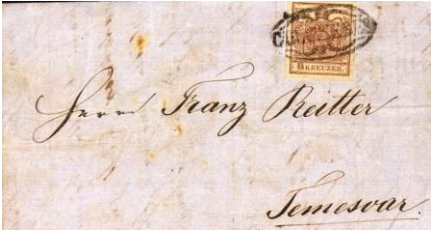 6 KREUZER.
Herrn Franz Reitter
Temesvar.